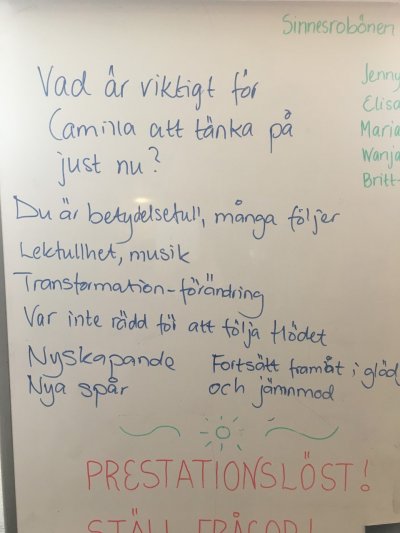 Sinnesrobönen
Vad är viktigt för
Camilla att tänka på
just nu?
Jenny
Elisa
Maria
Wanja
Britt-
Du är betydelsefull, många följer
Lekfullhet, musik
Transformation-förändring
Var inte rädd för att följa flödet
Nyskapande
Nya spår
Fortsätt framåt i glöd
och jämnmod
PRESTATIONSLÖST!
STÄLL FRÅGOR!